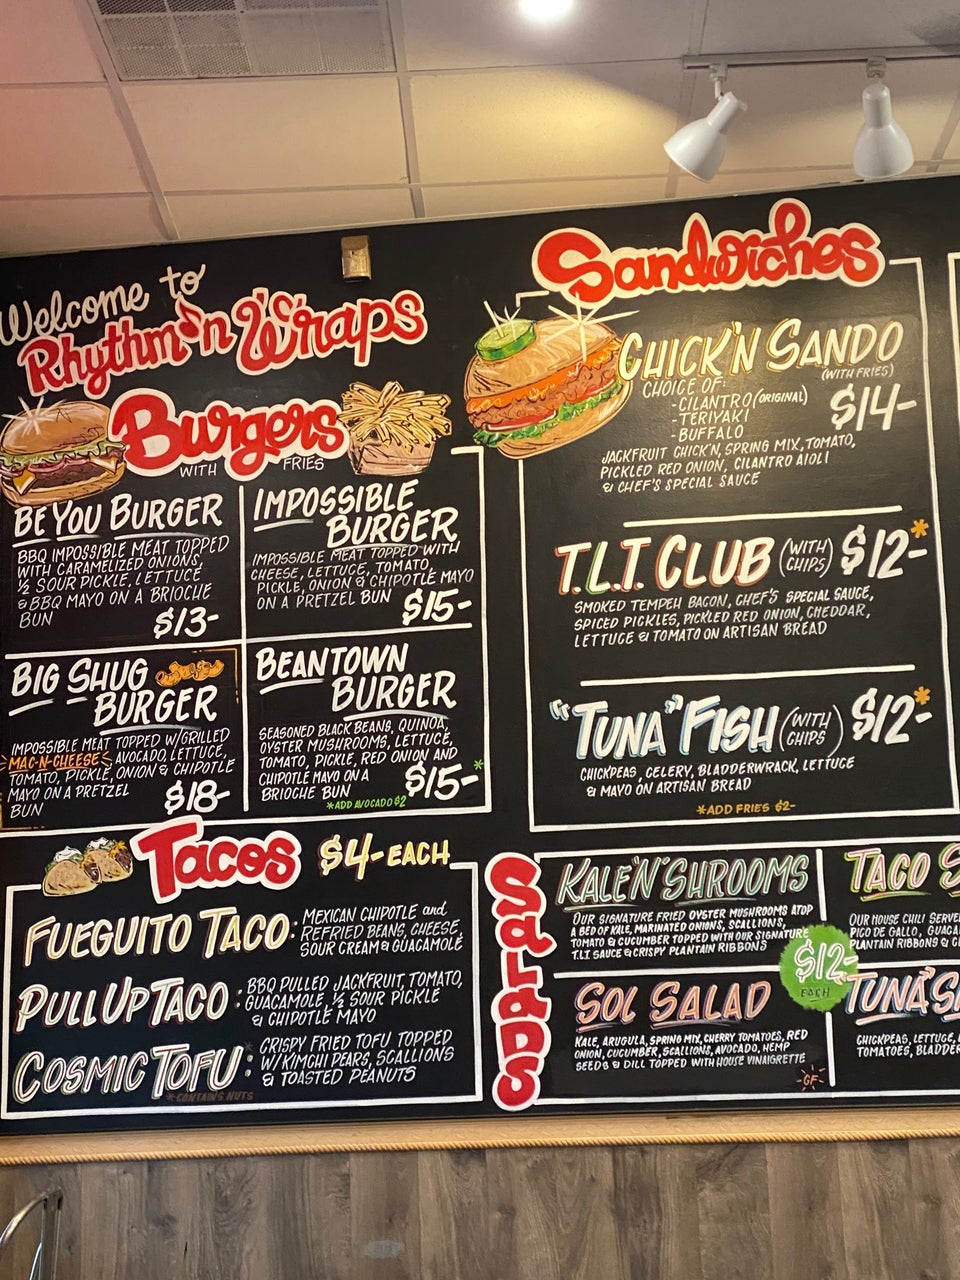 Welcome to
Rhythm 'n Wraps
Burgers
WITH FRIES
BE YOU BURGER
BBQ IMPOSSIBLE MEAT TOPPED
WITH CARAMELIZED ONIONS,
½ SOUR PICKLE, LETTUCE
& BBQ MAYO ON A BRIOCHE
BUN
$13-
IMPOSSIBLE
BURGER
IMPOSSIBLE MEAT TOPPED WITH
CHEESE, LETTUCE, TOMATO,
PICKLE, ONION & CHIPOTLE MAYO
ON A PRETZEL BUN
$15-
BIG SHUG
BURGER
IMPOSSIBLE MEAT TOPPED W/GRILLED
MAC-N-CHEESE AVOCADO, LETTUCE,
TOMATO, PICKLE, ONION & CHIPOTLE
MAYO ON A PRETZEL
BUN
$18-
BEANTOWN
BURGER
SEASONED BLACK BEANS, QUINOA,
OYSTER MUSHROOMS, LETTUCE,
TOMATO, PICKLE, RED ONION AND
CHIPOTLE MAYO ON A
BRIOCHE BUN
$15-*
*ADD AVOCADO $2
Tacos
$4- EACH
FUEGUITO TACO:
MEXICAN CHIPOTLE and
REFRIED BEANS, CHEESE,
SOUR CREAM & GUACAMOLE
PULL UP TACO:
BBQ PULLED JACKFRUIT, TOMATO,
GUACAMOLE, ½ SOUR PICKLE
& CHIPOTLE MAYO
COSMIC TOFU*:
CRISPY FRIED TOFU TOPPED
W/KIMCHI PEARS, SCALLIONS
& TOASTED PEANUTS
*CONTAINS NUTS
Sandwiches
CHICK'N SANDO
(WITH FRIES)
$14-
CHOICE OF:
-CILANTRO (ORIGINAL)
-TERIYAKI
-BUFFALO
JACKFRUIT CHICK'N, SPRING MIX, TOMATO,
PICKLED RED ONION, CILANTRO AIOLI
& CHEF'S SPECIAL SAUCE
T.L.T. CLUB (WITH CHIPS) $12-*
SMOKED TEMPEH BACON, CHEF'S SPECIAL SAUCE,
SPICED PICKLES, PICKLED RED ONION, CHEDDAR,
LETTUCE & TOMATO ON ARTISAN BREAD
"TUNA" FISH (WITH CHIPS) $12-*
CHICKPEAS, CELERY, BLADDERWRACK, LETTUCE
& MAYO ON ARTISAN BREAD
*ADD FRIES $2-
Salads
KALE 'N' SHROOMS
OUR SIGNATURE FRIED OYSTER MUSHROOMS ATOP
A BED OF KALE, MARINATED ONIONS, SCALLIONS,
TOMATO & CUCUMBER TOPPED WITH OUR SIGNATURE
T.L.T SAUCE & CRISPY PLANTAIN RIBBONS
TACO S
OUR HOUSE CHILI SERVE
PICO DE GALLO, GUACA
PLANTAIN RIBBONS & C
$12-
EACH
SOL SALAD
KALE, ARUGULA, SPRING MIX, CHERRY TOMATOES, RED
ONION, CUCUMBER, SCALLIONS, AVOCADO, HEMP
SEEDS & DILL TOPPED WITH HOUSE VINAIGRETTE
GF
"TUNA" S
CHICKPEAS, LETTUCE,
TOMATOES, BLADDER